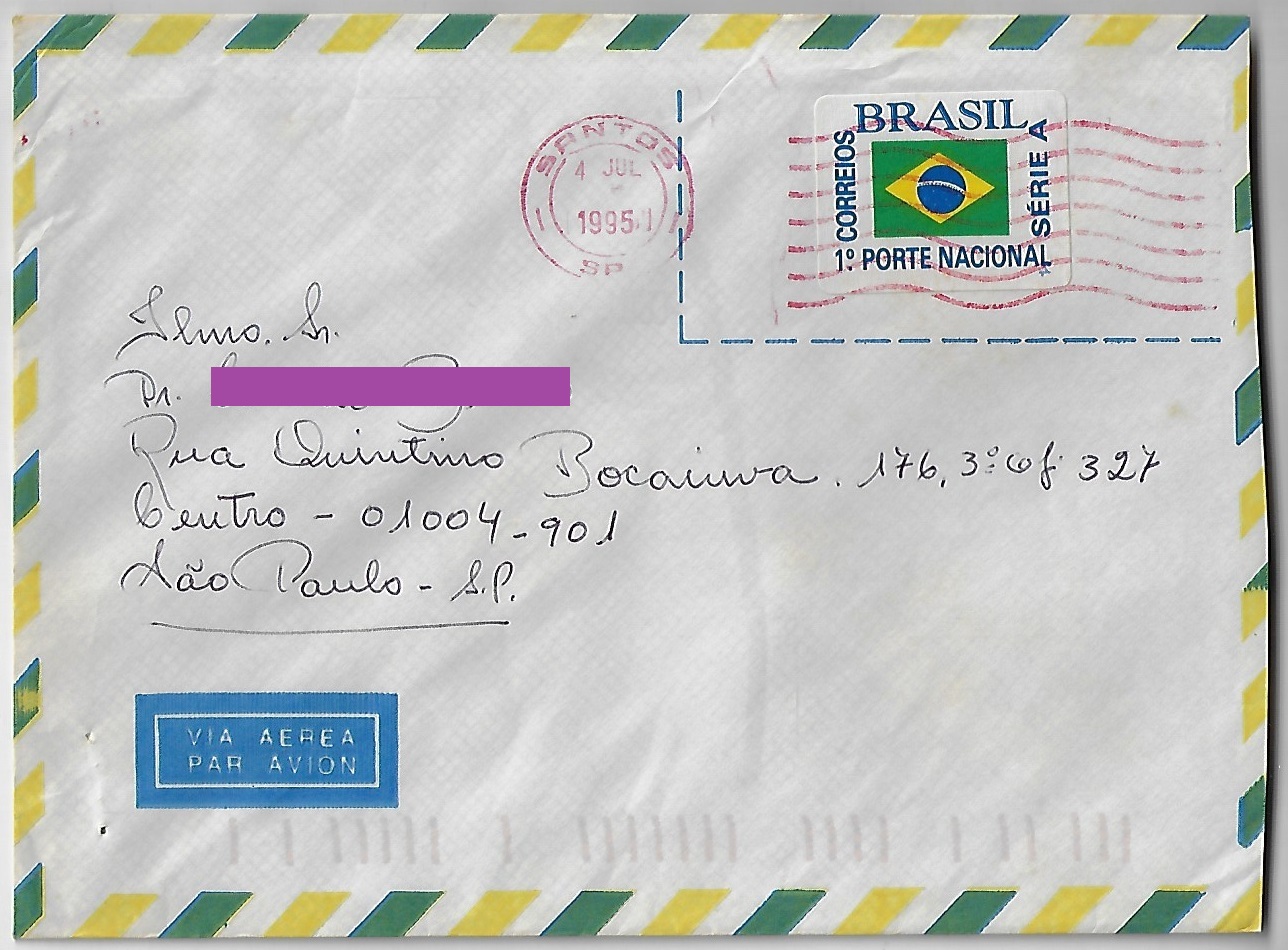 BRASIL
CORREIOS
SÉRIE A
1º PORTE NACIONAL
SANTOS
4 JUL
1995
SP
Ilmo. Sr.
Dr.
Rua Quintino Bocaiuva. 176, 3º cj 327
Centro - 01004-901
São Paulo - S.P.
VIA AEREA
PAR AVION